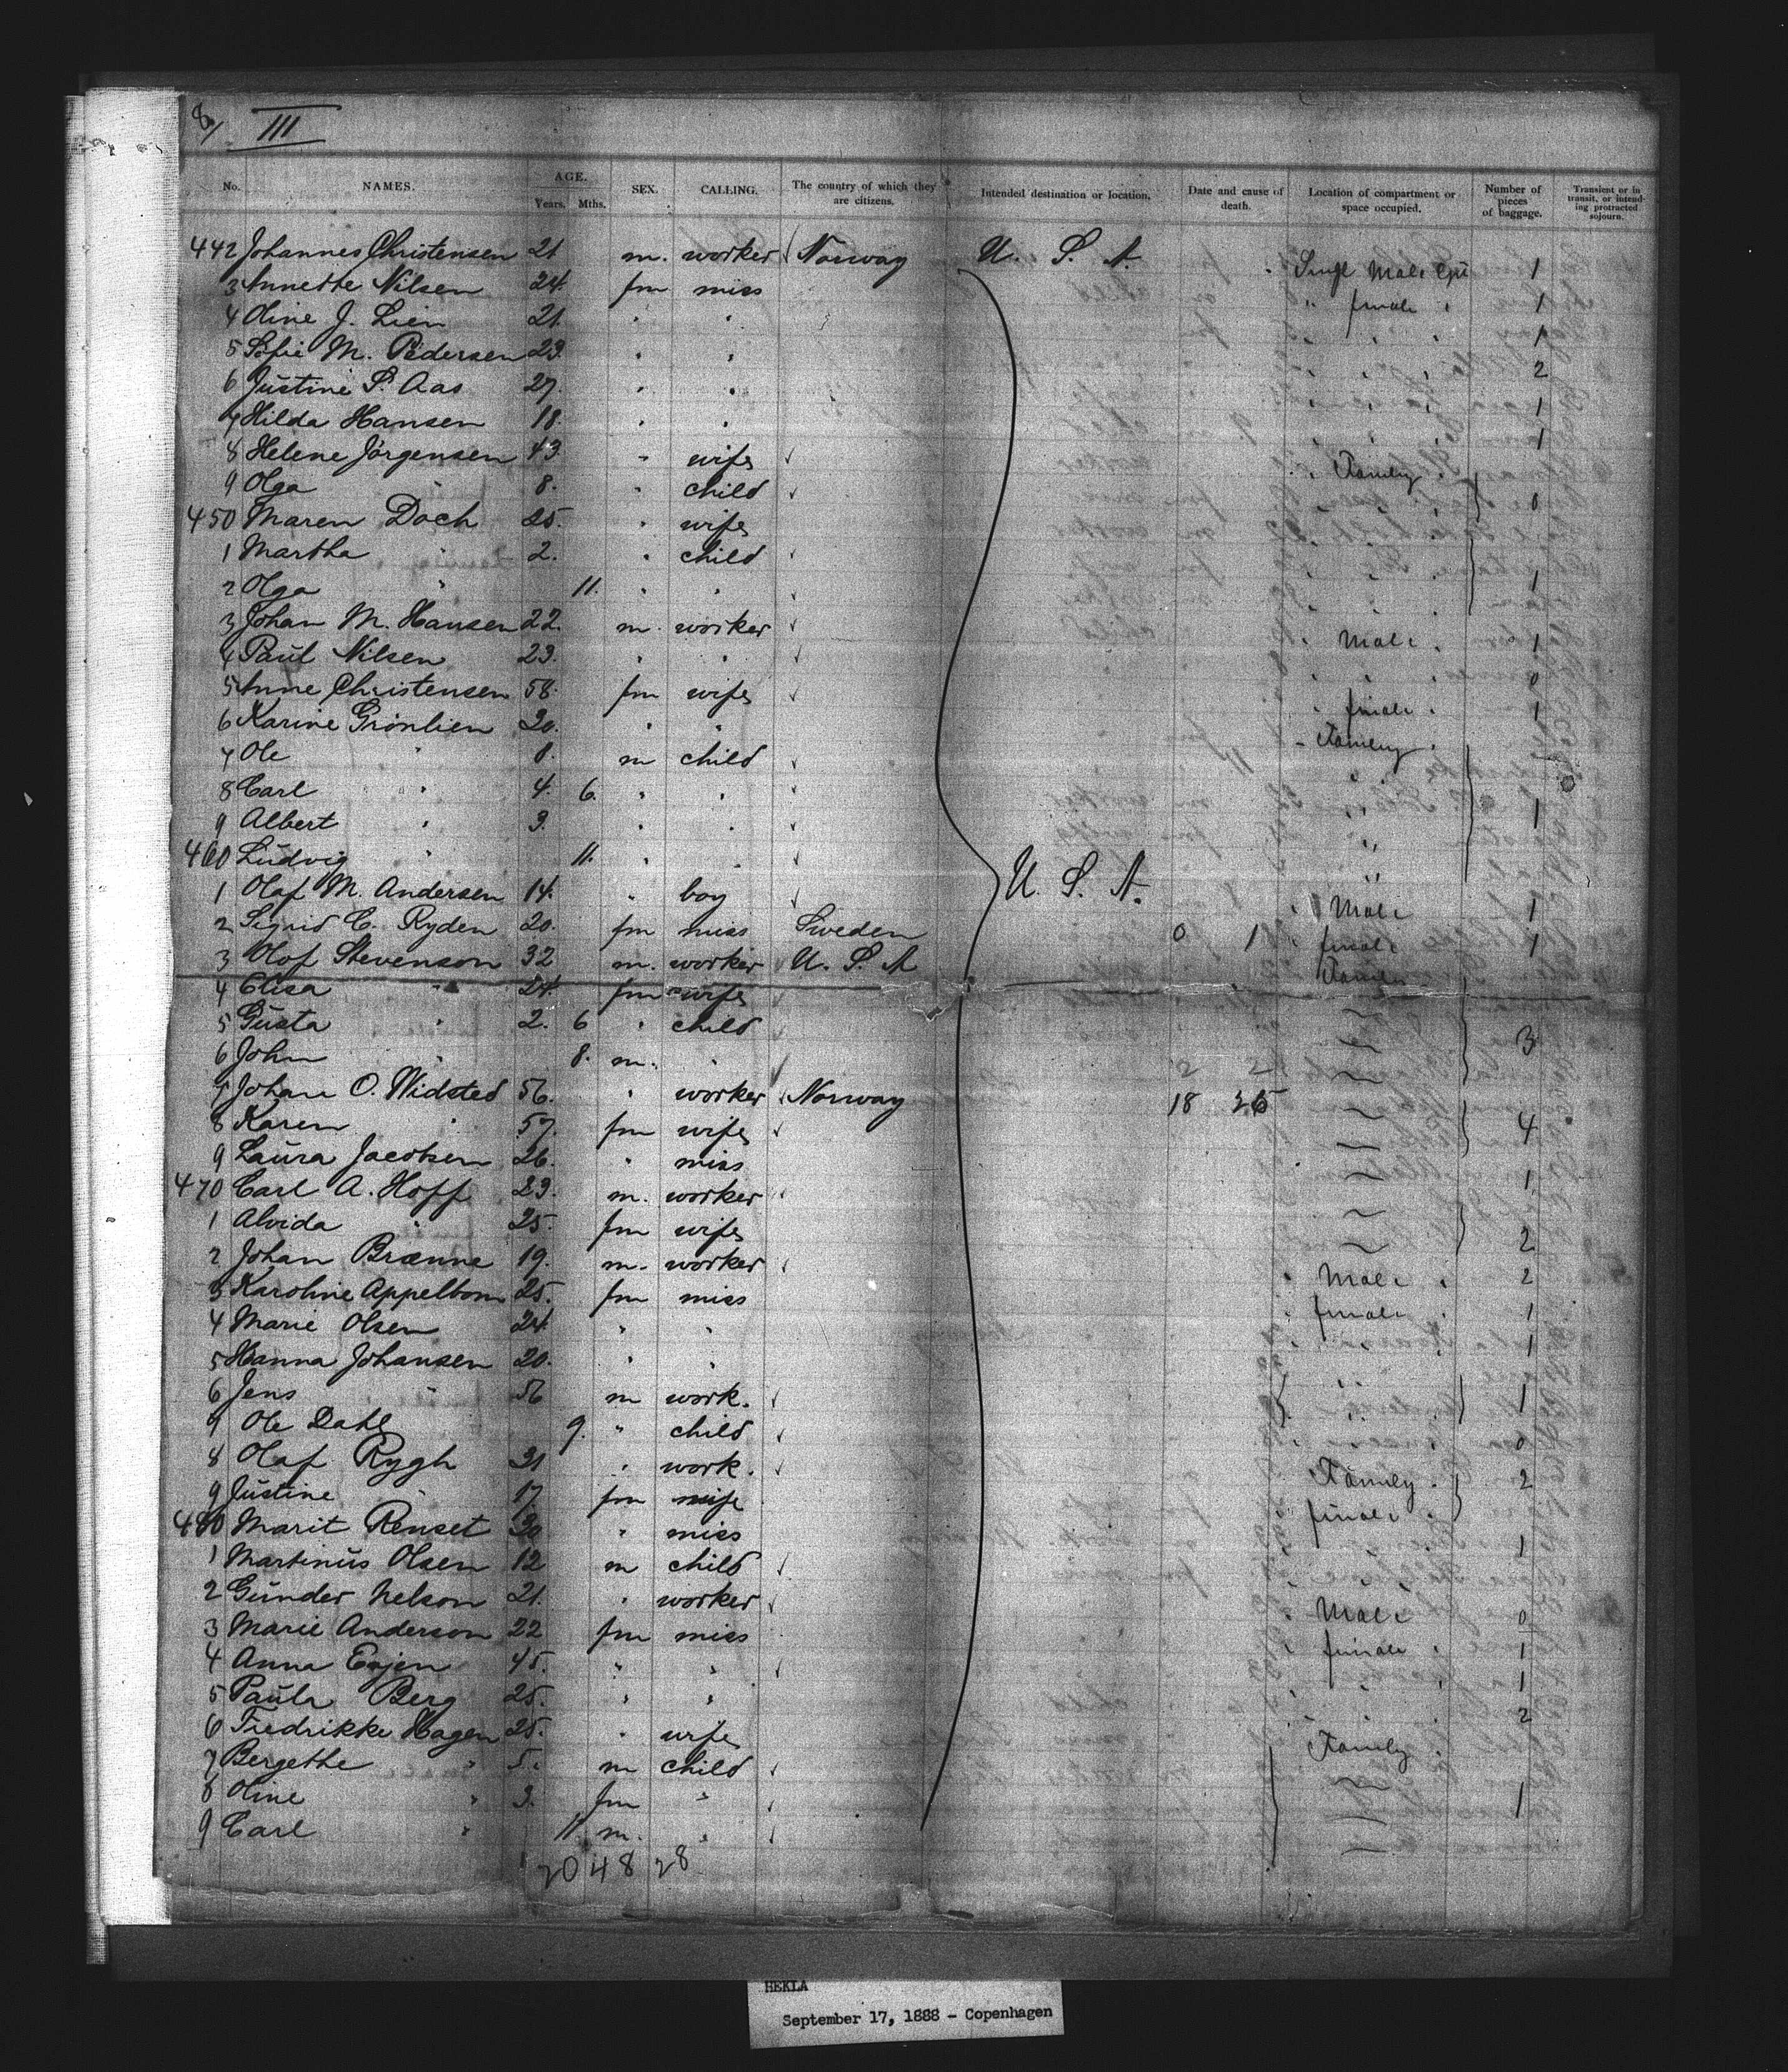 8/ III
No. NAMES. AGE. Years. Mths. SEX. CALLING. The country of which they are citizens. Intended destination or location. Date and cause of death. Location of compartment or space occupied. Number of pieces of baggage. Transient or in transit, or intending protracted sojourn.
442 Johannes Christensen 21 m. worker Norway U. S. A. Male 1
3 Annette Nilsen 24. fm miss " female " 1
4 Oline J. Lien 21. " " 1
5 Sofie M. Pedersen 23. " " 2
6 Justine P. Aas 27. " " 1
7 Hilda Hansen 18. " " 1
8 Helene Jörgensen 43. " wife Family
9 Olga " 8. " child 0
450 Maren Doch 25. " wife
1 Martha " 2. " child
2 Olga " 11. " " 1
3 Johan M. Hansen 22. m. worker Male 1
4 Paul Nilsen 23. " " 0
5 Anne Christensen 58. fm wife female 1
6 Karine Grönlien 30. " " Family
7 Ole " 8. m child
8 Carl " 4. 6. " "
9 Albert " 3. " " 1
460 Ludvig " 11. " "
1 Olaf M. Andersen 14. " boy U. S. A. Male 1
2 Sigrid C. Ryden 20. fm miss Sweden 0 1 female 1
3 Olof Stevenson 32 m. worker U. S. A Family
4 Elisa " 24 fm wife
5 Gusta " 2. 6 " child 3
6 John " 8. m. " 2 2
7 Johan O. Widsted 56. " worker Norway 18 25
8 Karen " 57. fm wife 4
9 Laura Jacobsen 26. " miss 1
470 Carl A. Hoff 23. m. worker
1 Alvida " 25. fm wife 2
2 Johan Brænne 19. m. worker Male 2
3 Karoline Appelbom 25. fm miss female 1
4 Marie Olsen 24. " " 1
5 Hanna Johansen 20. " "
6 Jens " 56 m work. 1
7 Ole Dahl 9. " child 0
8 Olaf Rygh 31 " work. Family 2
9 Justine " 17. fm wife female
480 Marit Renset 30 " miss 1
1 Martinus Olsen 12 m child
2 Gunder Nelson 21. " worker Male 0
3 Marie Anderson 22 fm miss female 1
4 Anna Enjen 45. " " 1
5 Paula Berg 25. " " 2
6 Fredrikke Hagen 25. " wife Family
7 Bergethe " 5. m child
8 Oline " 3. fm " 1
9 Carl " 11. m. "
20 48 28
HEKLA
September 17, 1888 - Copenhagen